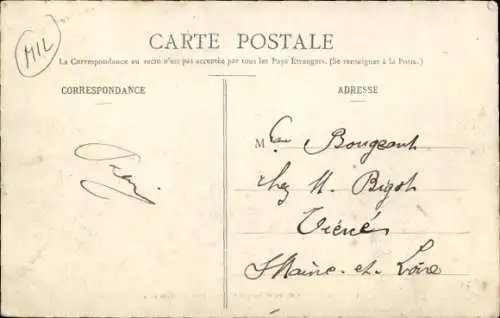 MIL
CARTE POSTALE
La Correspondance au recto n'est pas acceptée par tous les Pays Étrangers. (Se renseigner à la Poste.)
CORRESPONDANCE
ADRESSE
Mlle Bougeant
chez M. Bigot
Maine-et-Loire